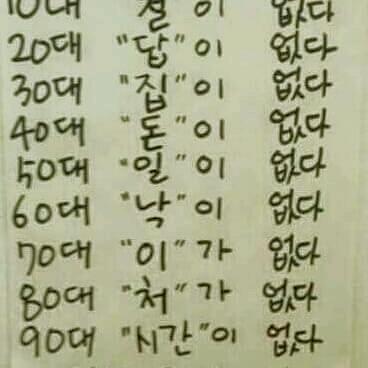 10대 이 없다
20대 "답"이 없다
30대 "집"이 없다
40대 "돈"이 없다
50대 "일"이 없다
60대 "낙"이 없다
70대 "이"가 없다
80대 "처"가 없다
90대 "시간"이 없다